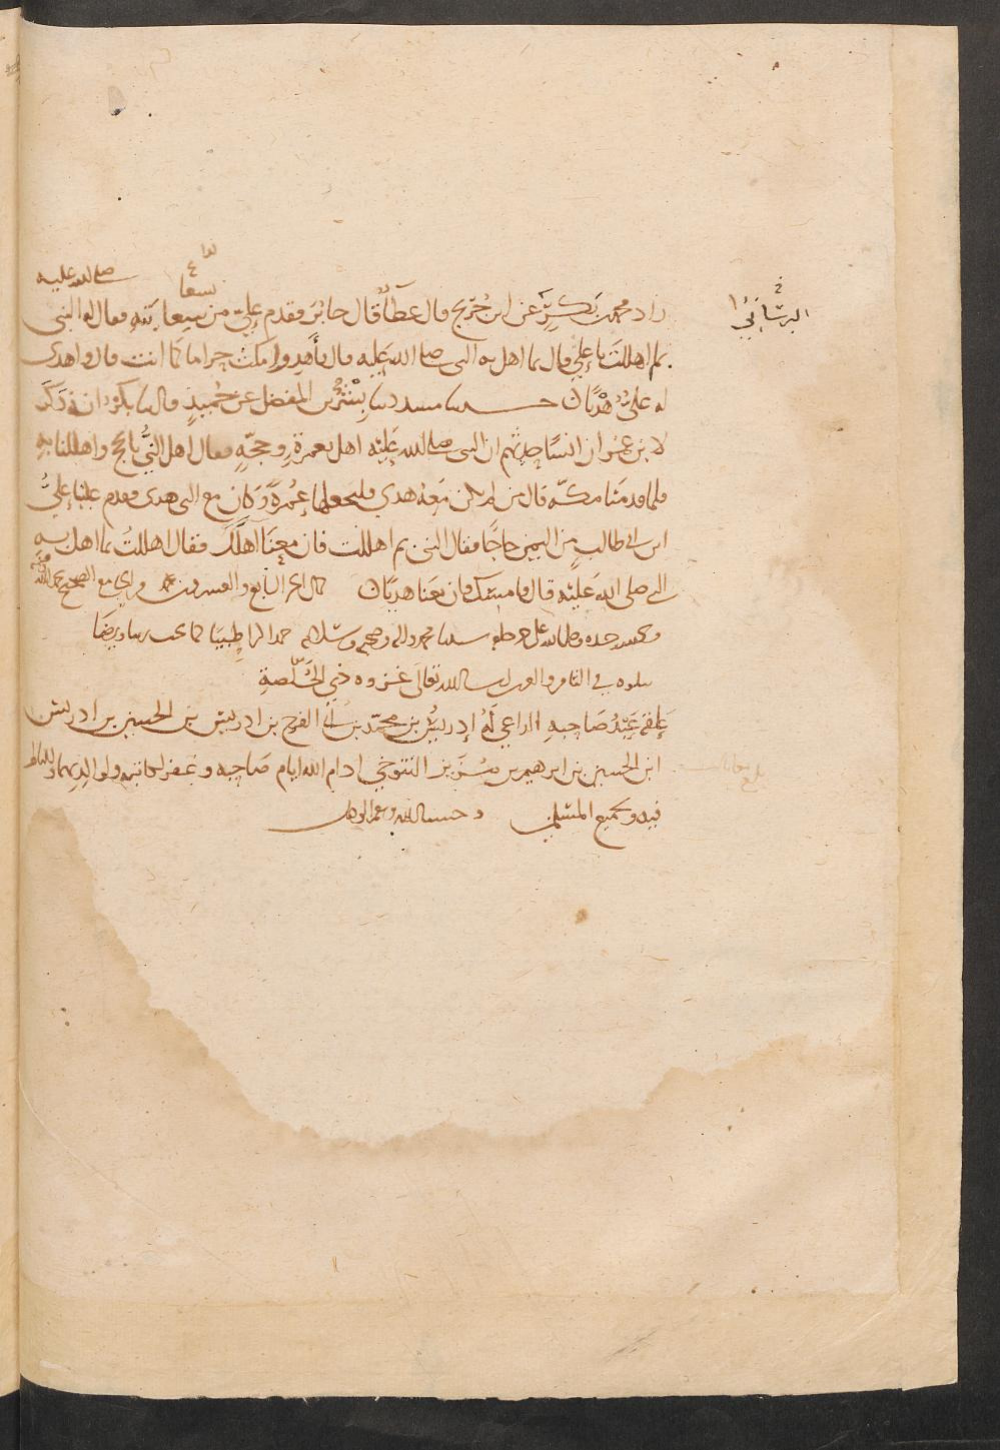 البرساني
زاد محمد بن بكر عن ابن جريج قال عطاء قال جابر فقدم علي من سعايته فقال له النبي صلى الله عليه
بم اهللت يا علي قال بما اهل به النبي صلى الله عليه قال فأهد وامكث حراما كما انت قال واهدى
له علي هديا ن حدثنا مسدد ثنا بشر بن المفضل عن حميد قال ثنا بكر انه ذكر
لابن عمر ان انسا حدثهم ان النبي صلى الله عليه اهل بعمرة وحجة فقال اهل النبي بالحج واهللنا به
فلما قدمنا مكة قال من لم يكن معه هدي فليجعلها عمرة وكان مع النبي هدي فقدم علينا علي
ابن ابي طالب من اليمن حاجا فقال النبي بم اهللت فان معنا اهلك فقال اهللت بما اهل به
النبي صلى الله عليه قال فامسك فان معنا هديا ن كمل الجزء السابع والعشرون من الصحيح بحمد الله
سيدنا محمد واله وصحبه وسلامه حمدا كثيرا طيبا كما يحب ربنا ويرضى
يتلوه في الثامن والعشرين ان شا الله تعالى غزوه ذي الخلصة
علقه عبد صاحبه الداعي له إدريس بن محمد بن ابي الفرج بن ادريس بن الحسين بن ادريس
ابن الحسين بن ابرهيم بن التنوخي ادام الله ايام صاحبه وغفر لكاتبه ولوالديهما وللناظر
فيه ولجميع المسلمين وحسبنا الله ونعم الوكيل